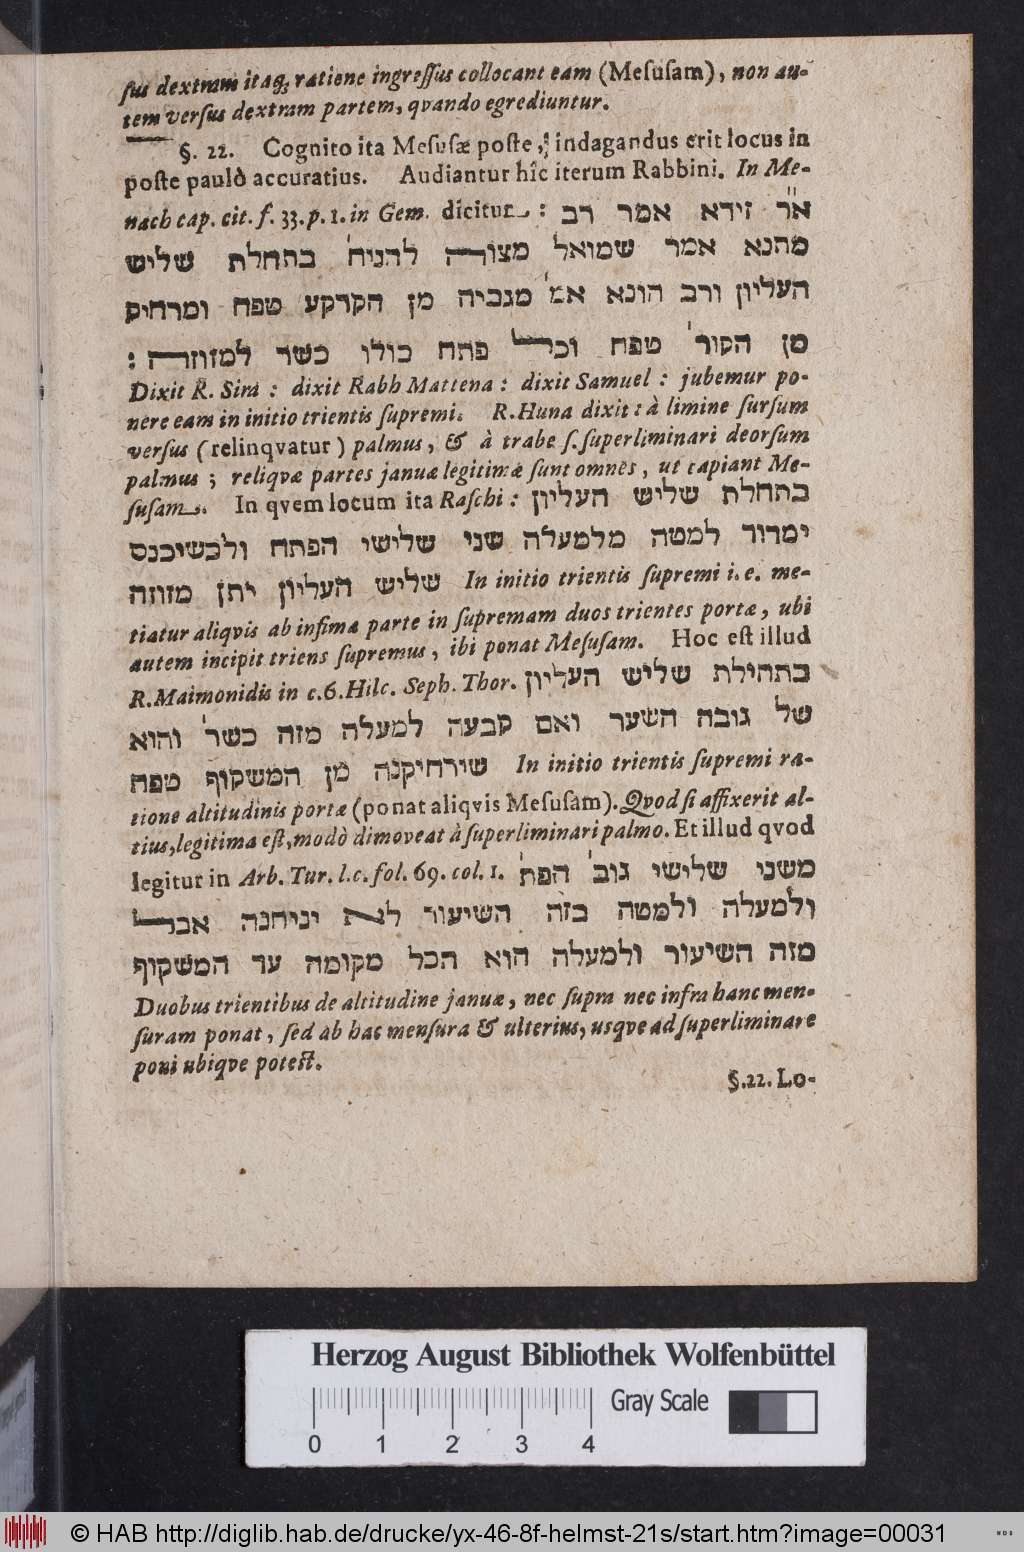 ſus dextram itaq; ratione ingreſſus collocant eam (Meſuſam), non au-
tem verſus dextram partem, qvando egrediuntur.
§. 22. Cognito ita Meſuſæ poſte, indagandus erit locus in
poſte paulò accuratius. Audiantur hîc iterum Rabbini. In Me-
nach cap. cit. f. 33. p. 1. in Gem. dicitur: א״ר זירא אמר רב
מתנא אמר שמואל מצורה להניח בתחלת שליש
העליון ורב הונא אמ׳ מגביה מן הקרקע טפח ומרחיק
מן הקור׳ טפח וכל פתח כולו כשר למזוזה:
Dixit R. Sira: dixit Rabh Mattena: dixit Samuel: jubemur po-
nere eam in initio trientis ſupremi. R. Huna dixit: à limine ſurſum
verſus (relinqvatur) palmus, & à trabe ſ. ſuperliminari deorſum
palmus; reliqvæ partes januæ legitimæ ſunt omnes, ut capiant Me-
ſuſam. In qvem locum ita Raſchi: בתחלת שליש העליון
ימדוד למטה מלמעלה שני שלישי הפתח ולכשיכנס
שליש העליון יתן מזוזה In initio trientis ſupremi i. e. me-
tiatur aliqvis ab infima parte in ſupremam duos trientes portæ, ubi
autem incipit triens ſupremus, ibi ponat Meſuſam. Hoc eſt illud
R. Maimonidis in c. 6. Hilc. Seph. Thor. בתחילת שליש העליון
של גובה השער ואם קבעה למעלה מזה כשר׳ והוא
שירחיקנה מן המשקוף טפח In initio trientis ſupremi ra-
tione altitudinis portæ (ponat aliqvis Meſuſam). Qvod ſi affixerit al-
tius, legitima eſt, modò dimoveat à ſuperliminari palmo. Et illud qvod
legitur in Arb. Tur. l. c. fol. 69. col. 1. משני שלישי גוב׳ הפת׳
ולמעלה ולמטה בזה השיעור לא יניחנה אבל
מזה השיעור ולמעלה הוא הכל מקומה עד המשקוף
Duobus trientibus de altitudine januæ, nec ſupra nec infra hanc men-
ſuram ponat, ſed ab hac menſura & ulterius, usqve ad ſuperliminare
poni ubiqve poteſt.
§. 22. Lo-
Herzog August Bibliothek Wolfenbüttel
Gray Scale
0 1 2 3 4
© HAB http://diglib.hab.de/drucke/yx-46-8f-helmst-21s/start.htm?image=00031